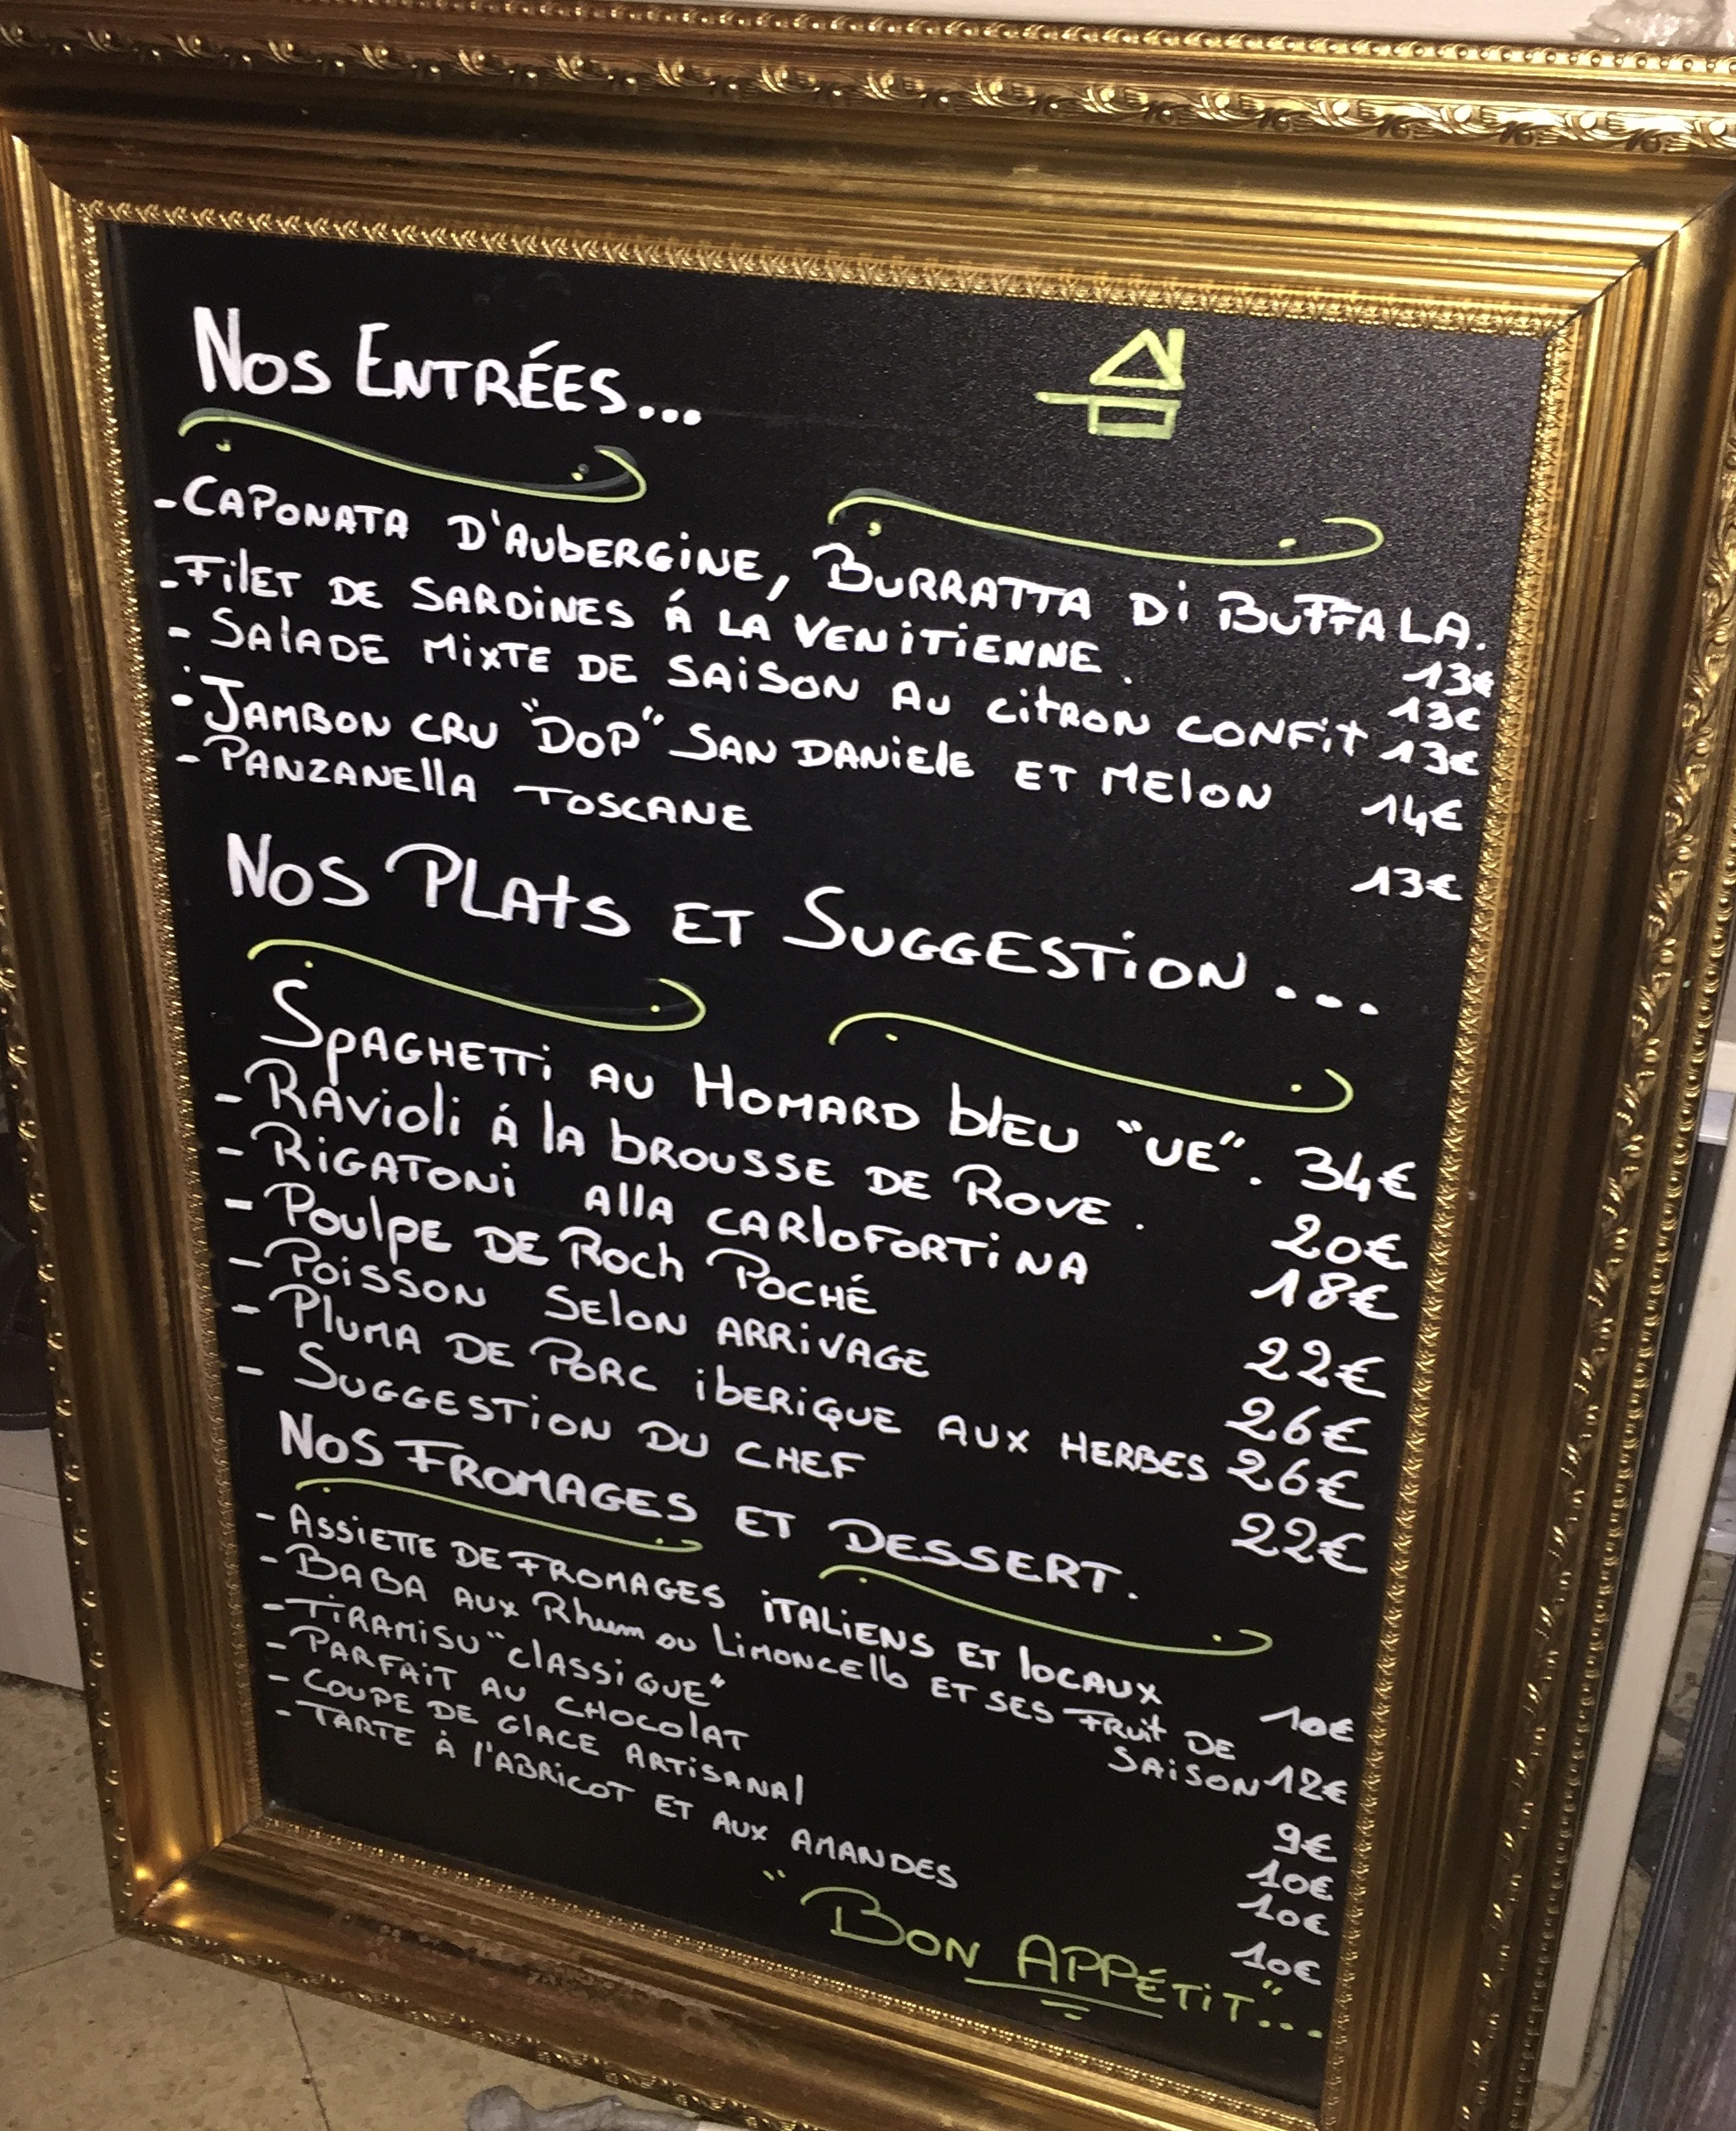 NOS ENTRÉES...
- CAPONATA D'AUBERGINE, BURRATTA Di BUFFALA. 13€
- FilET DE SARDINES Á LA VENITIENNE. 13€
- SALADE MIXTE DE SAISON AU CITRON CONFIT 13€
- JAMBON CRU "DOP" SAN DANIELE ET MELON 14€
- PANZANELLA TOSCANE 13€
NOS PLATS ET SUGGESTION...
SPAGHETTI AU HOMARD BLEU "UE". 34€
- RAVIOLI Á LA BROUSSE DE ROVE. 20€
- RIGATONI ALLA CARLOFORTINA 18€
- POULPE DE ROCH POCHÉ 22€
- POISSON SELON ARRIVAGE 26€
- PLUMA DE PORC IBERIQUE AUX HERBES 26€
- SUGGESTION DU CHEF 22€
NOS FROMAGES ET DESSERT.
- ASSIETTE DE FROMAGES ITALIENS ET LOCAUX 10€
- BABA AUX Rhum ou LIMONCELLO ET SES FRUIT DE
SAISON 12€
- TIRAMISU "CLASSIQUE" 9€
- PARFAIT AU CHOCOLAT 10€
- COUPE DE GLACE ARTISANAL 10€
- TARTE À L'ABRICOT ET AUX AMANDES 10€
"BON APPÉTIT"...